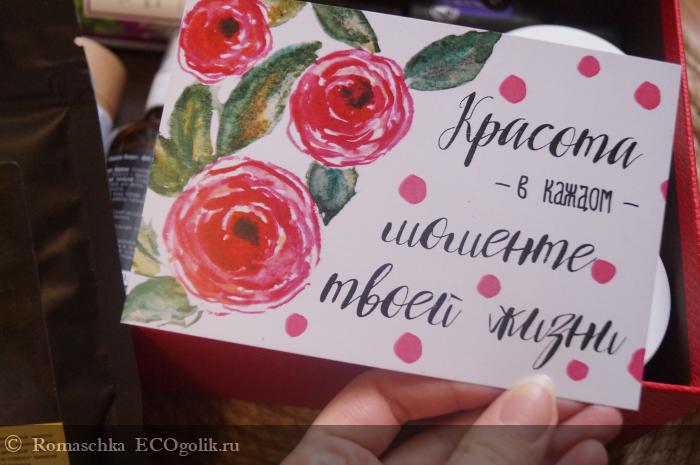 Красота
– в каждом –
моменте
твоей жизни
© Romaschka ECOgolik.ru